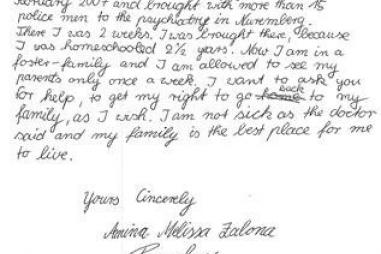 February 2007 and brought with more than 15
police men to the psychiatrie in Nuremberg.
There I was 2 weeks. I was brought there, because
I was homeschooled 2 1/2 years. Now I am in a
foster-family and I am allowed to see my
parents only once a week. I want to ask you
for help, to get my right to go back to my
family, as I wish. I am not sick as the doctor
said and my family is the best place for me
to live.
Yours Sincerely
Amina Melissa